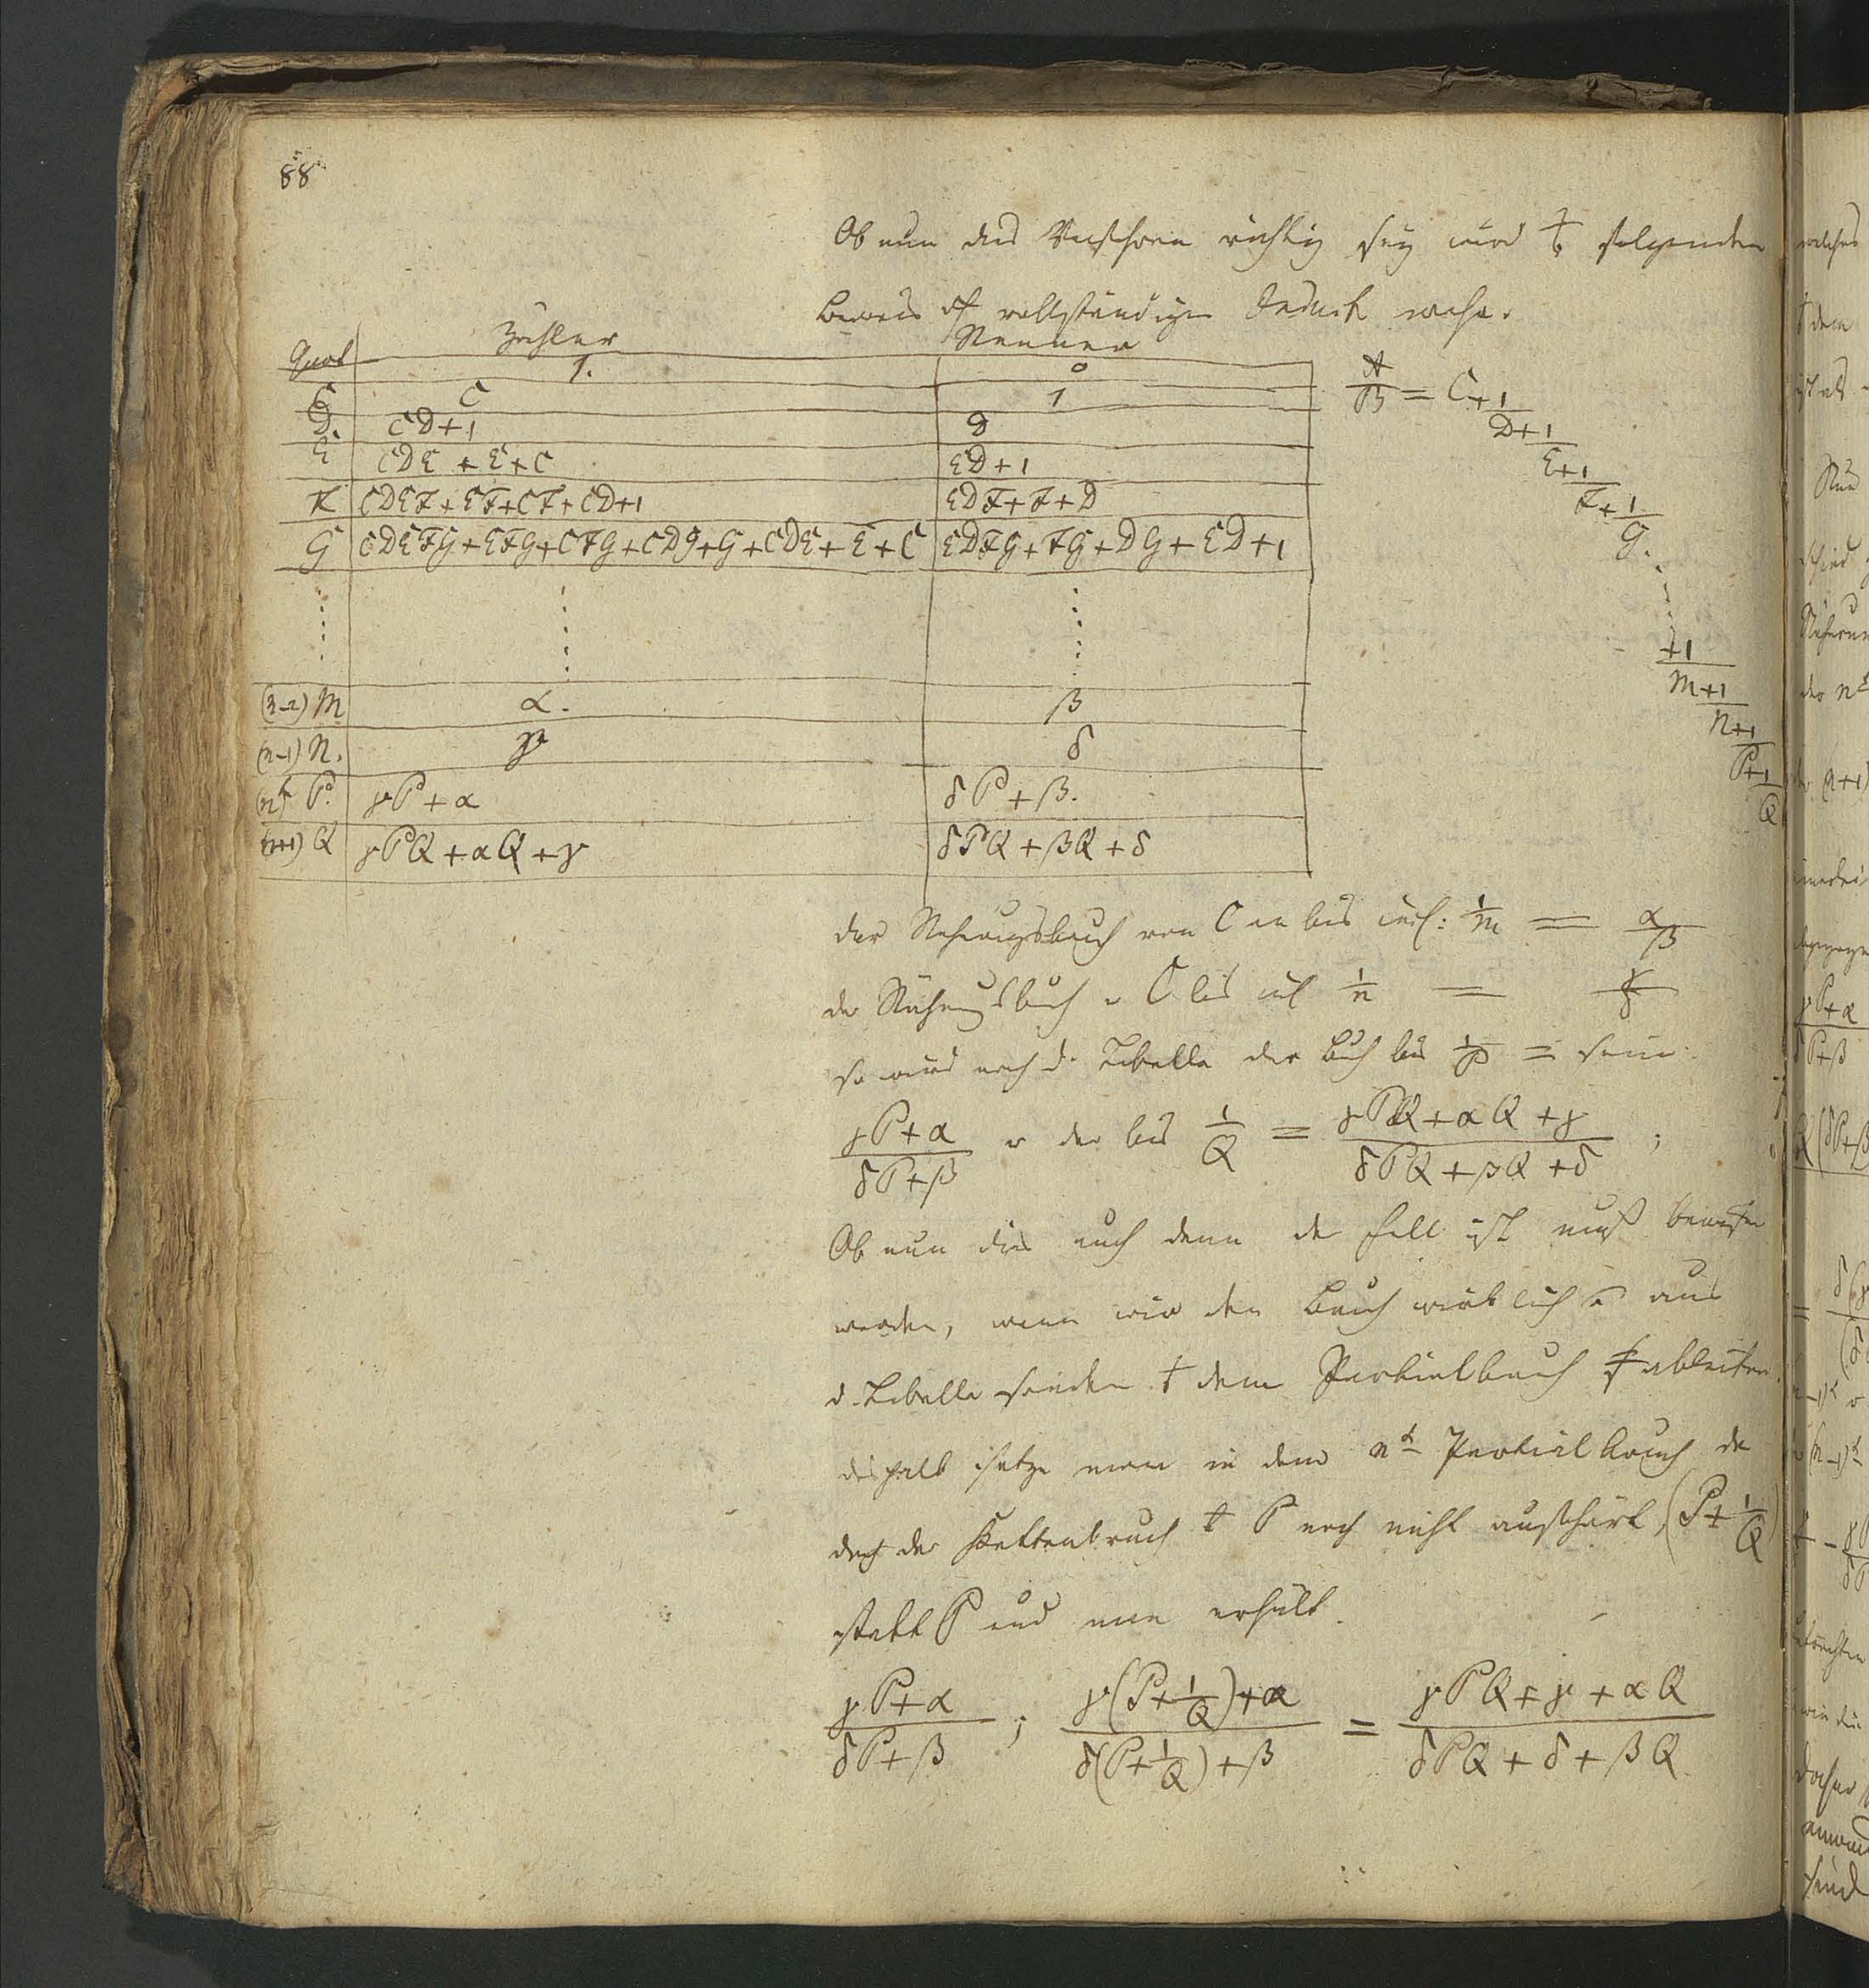 88
Ob nun das Verfahren richtig sey wird folgender
Beweis vollständiger Induct
Quot Zähler Nenner
1. 0
C C 1
D. CD+1 D
E CDE + E+C ED+1
F CDEF+EF+CF+CD+1 EDF+F+D
G CDEFG+EFG+CFG+CDG+G+CDE+E+C EDFG+FG+DG+ED+1
A/B = C+1/D+1/E+1/F+1/G.
+1/M+1/N+1/P+1/Q
(n-2) M α. β
(n-1) N. γ δ
(n)t P. γP+α δP+β.
(n+1) Q γPQ+αQ+γ δPQ+βQ+δ
der Näherungsbruch von C an bis incl: 1/m = α/β
der Näherungsbruch v C bis incl 1/n = γ/δ
so wird nach d. Tabelle der Bruch bis 1/P = sein
γP+α/δP+β u der bis 1/Q = γPQ+αQ+γ/δPQ+βQ+δ ;
Ob nun dies auch denn der Fall ist muß bewiesen
werden, wenn wir den Bruch wirklich aus
d. Tabelle sondern dem Partialbruch ableiten.
deshalb setze man in dem nt Partialbruch da
doch der Kettenbruch P noch nicht aufhört, (P+1/Q)
statt P und man erhält.
γP+α/δP+β ; γ(P+1/Q)+α/δ(P+1/Q)+β = γPQ+γ+αQ/δPQ+δ+βQ